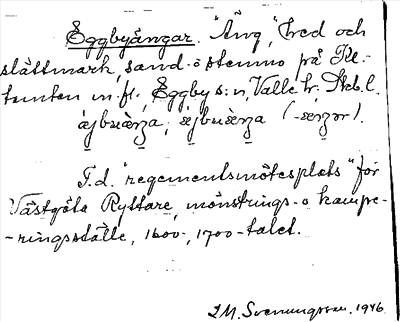 Eggbyängar. "Äng", hed och
slåttmark, sand- o stenmo på Kl.-
tomten m.fl., Eggby s:n, Valle hr; Skb. l.
T.d. "regementsmötesplats" för
Västgöta Ryttare, mönstrings- o kampe-
-ringsställe, 1600-, 1700-talet.
I.M. Svenungsson. 1946.